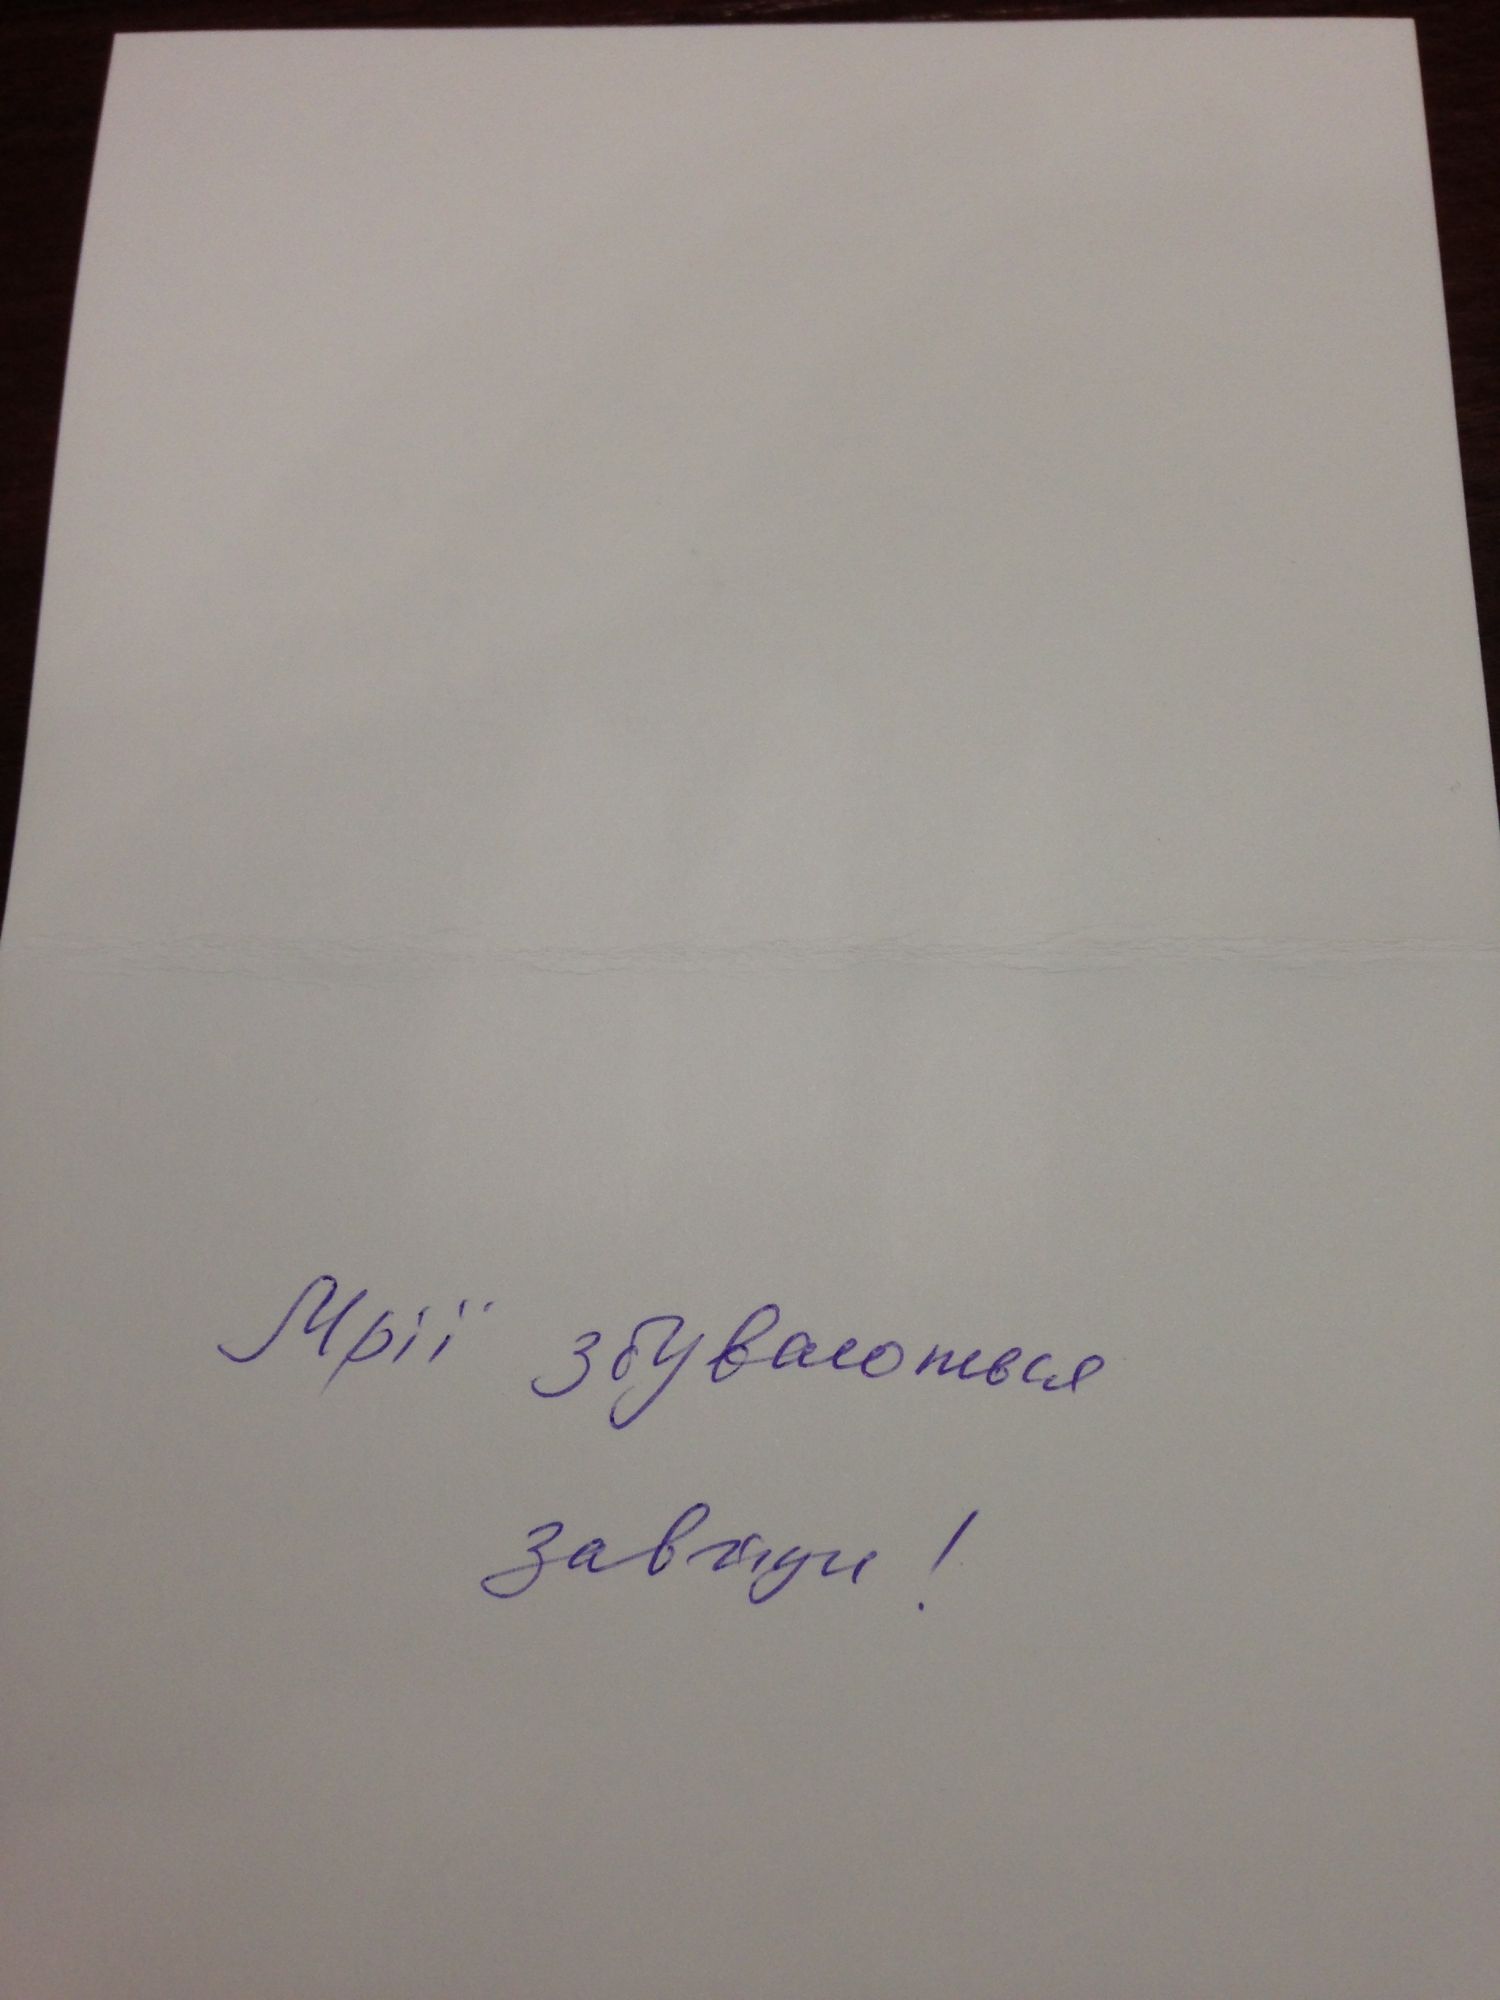 Мрії збуваються
завжди!